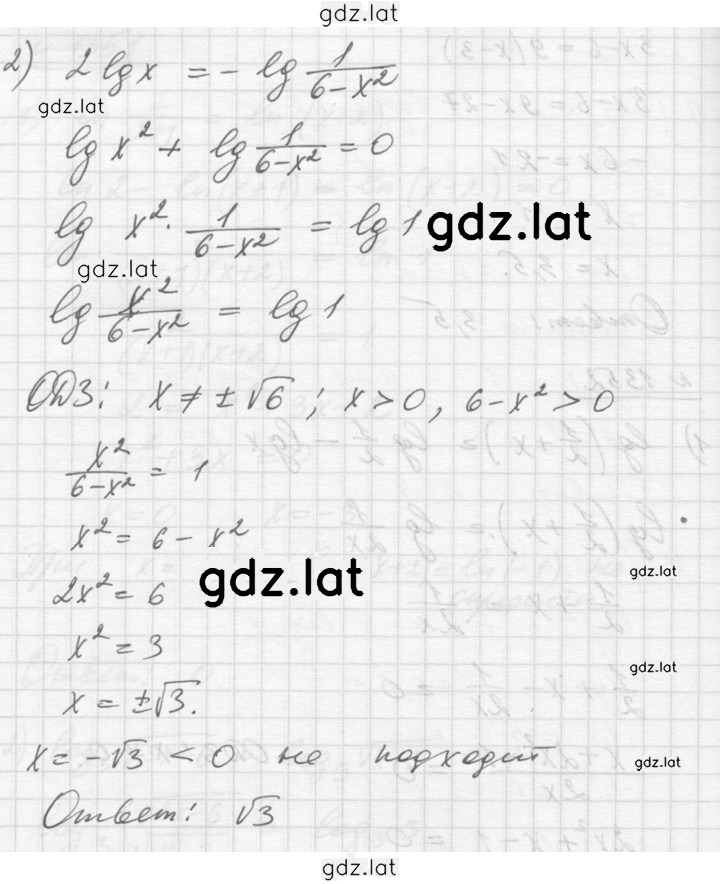 gdz.lat
2) 2 lg x = - lg 1/(6-x²)
gdz.lat
lg x² + lg 1/(6-x²) = 0
lg x² · 1/(6-x²) = lg 1 gdz.lat
gdz.lat
lg x²/(6-x²) = lg 1
ОДЗ: x ≠ ± √6 ; x > 0, 6-x² > 0
x²/(6-x²) = 1
x² = 6 - x²
gdz.lat
gdz.lat
2x² = 6
x² = 3
gdz.lat
x = ±√3.
x = -√3 < 0 не подходит
gdz.lat
Ответ: √3
gdz.lat